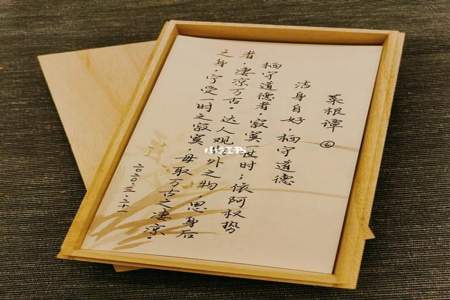 菜根谭
洁身自好，栖守道德
栖守道德者，寂寞一时；依阿权势
者，凄凉万古。达人观外之物，思身后
之身，宁受一时之寂寞，毋取万古之凄凉。